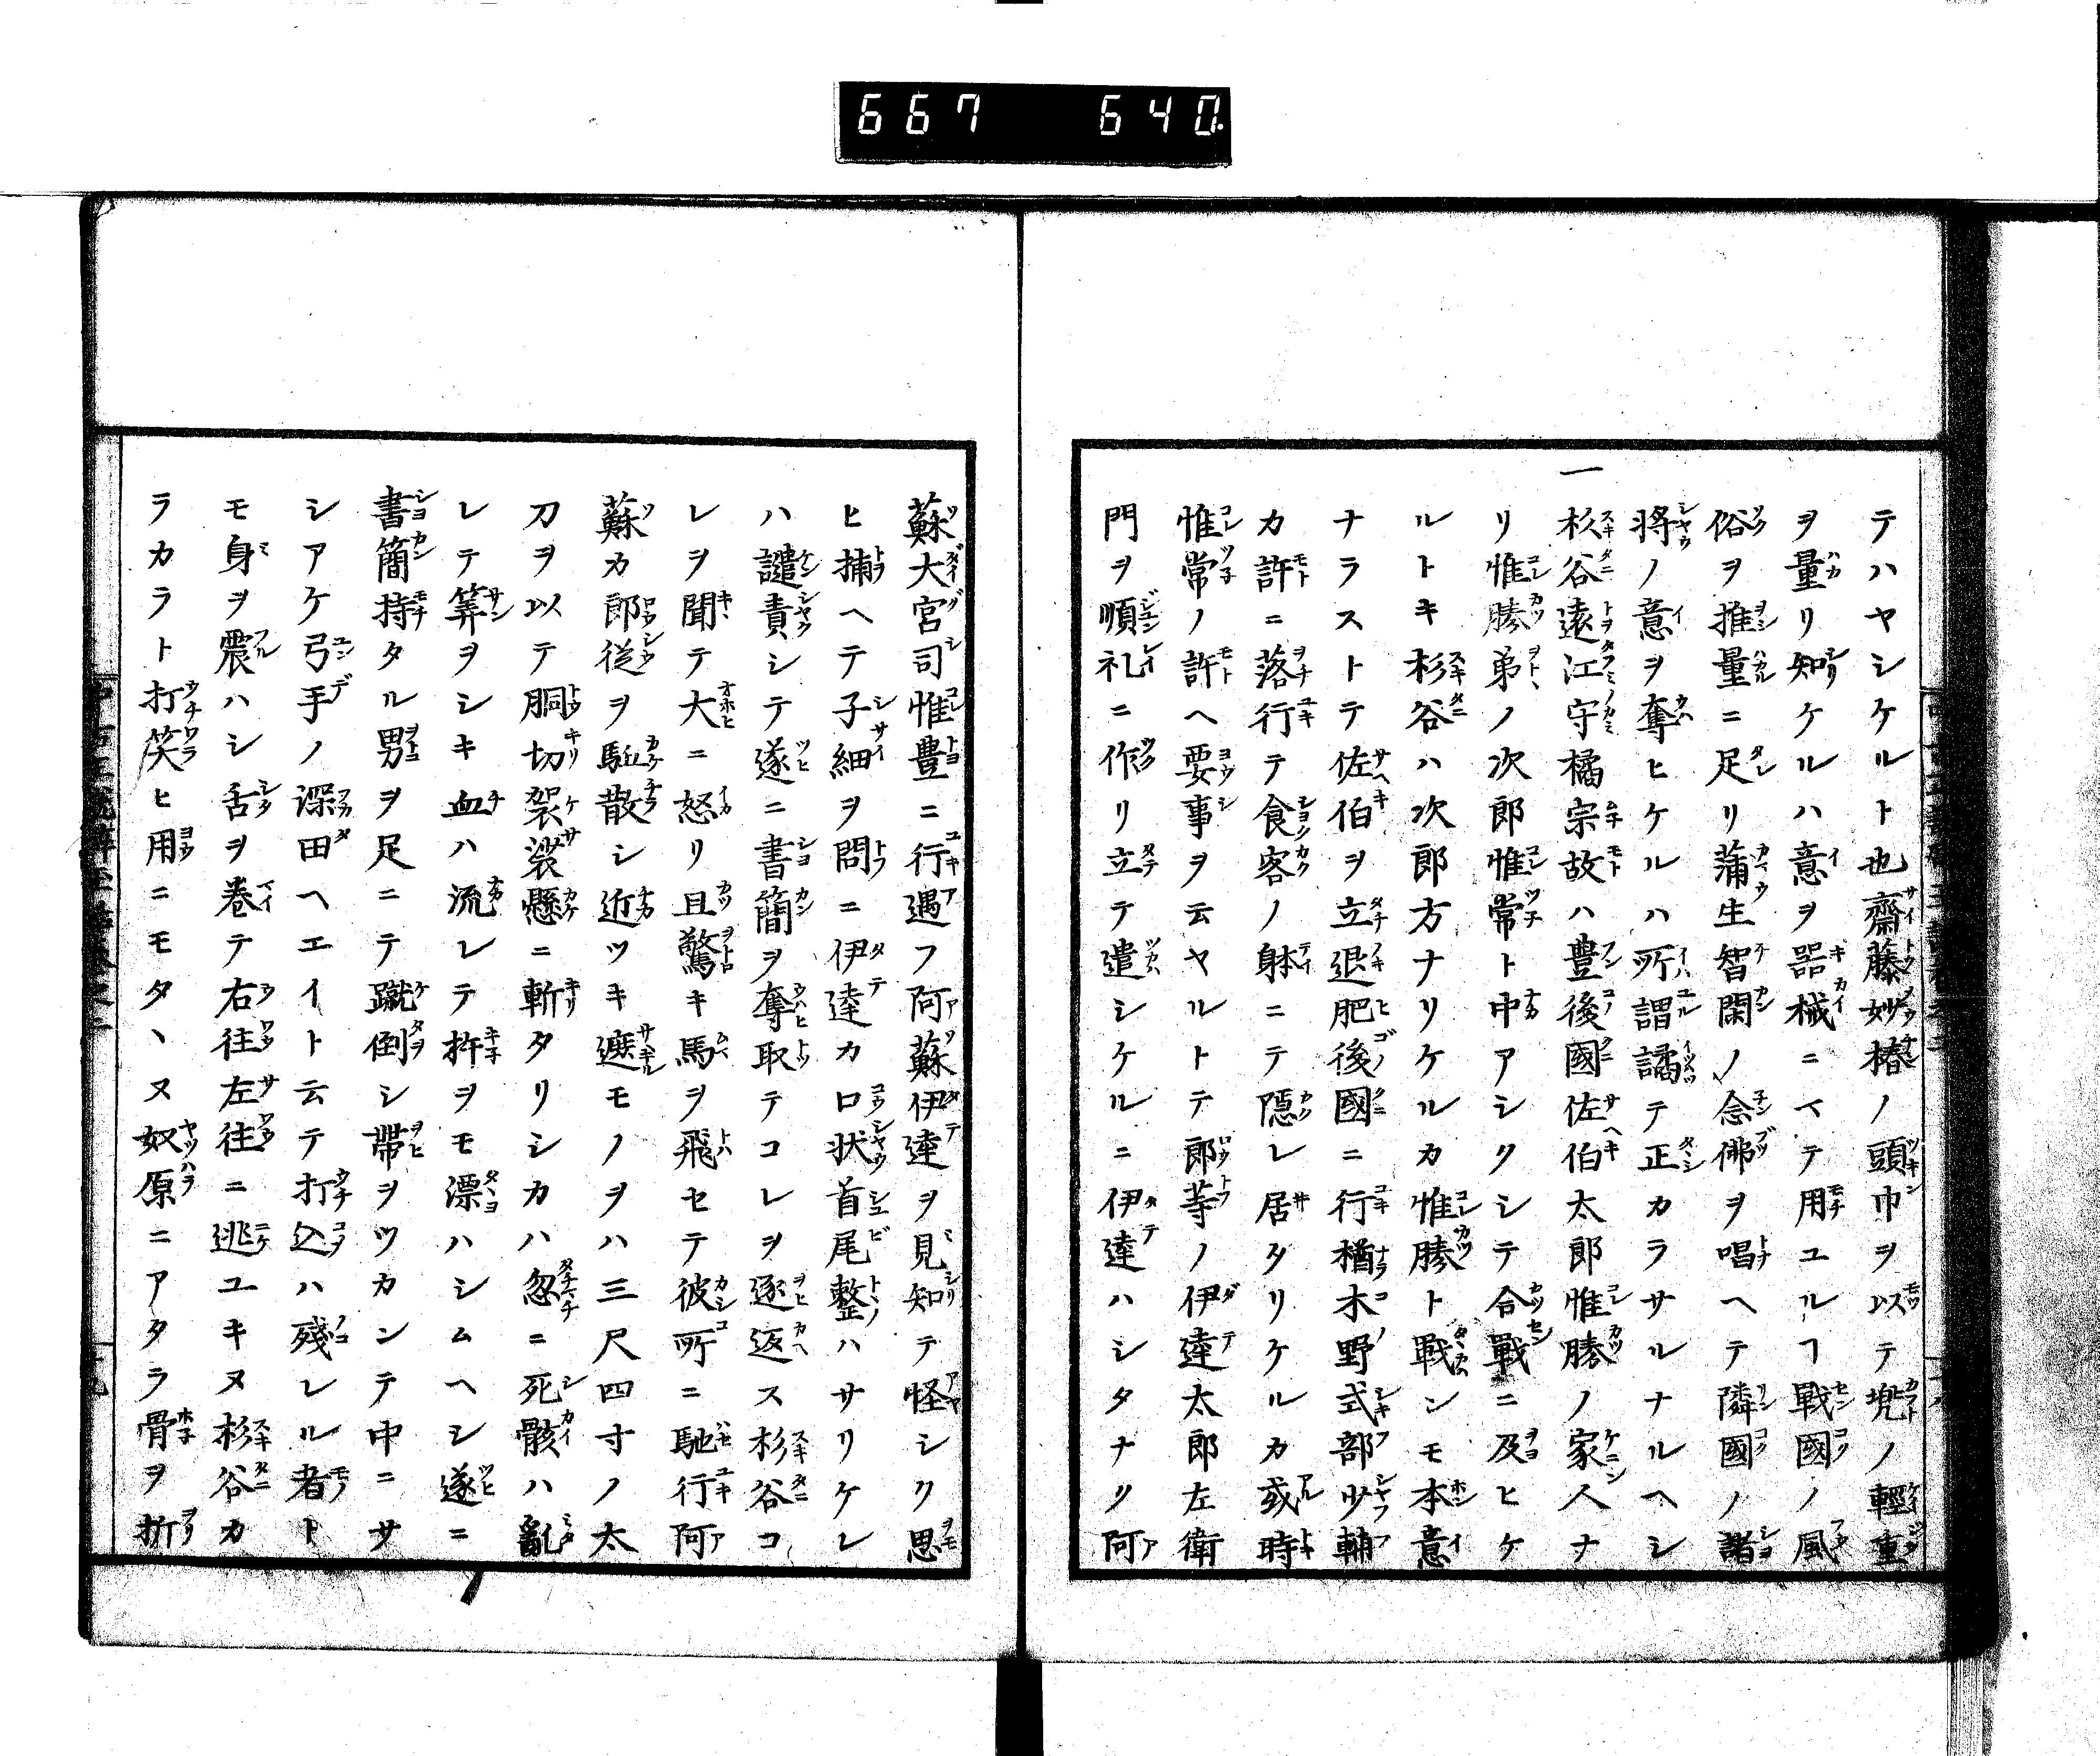 667 640.
テハヤシケルト也齋藤妙椿ノ頭巾ヲ以テ兠ノ輕重
ヲ量リ知ケルハ意ヲ器械ニヘテ用ユルヿ戰國ノ風
俗ヲ推量ニ足リ蒲生智閑ノ念佛ヲ唱ヘテ隣國ノ諸
將ノ意ヲ奪ヒケルハ所謂譎テ正カラサルナルヘシ
一杉谷遠江守橘宗故ハ豊後國佐伯太郎惟勝ノ家人ナ
リ惟勝弟ノ次郎惟常ト中アシクシテ合戰ニ及ヒケ
ルトキ杉谷ハ次郎方ナリケルカ惟勝ト戰ンモ本意
ナラストテ佐伯ヲ立退肥後國ニ行楢木野式部少輔
カ許ニ落行テ食客ノ躰ニテ隱レ居タリケルカ或時
惟常ノ許ヘ要事ヲ云ヤルトテ郎等ノ伊達太郎左衛
門ヲ順礼ニ作リ立テ遣シケルニ伊達ハシタナリ阿
蘇大宮司惟豊ニ行遇フ阿蘇伊達ヲ見知テ怪シク思
ヒ捕ヘテ子細ヲ問ニ伊達カ口状首尾整ハサリケレ
ハ譴責シテ遂ニ書簡ヲ奪取テコレヲ逐返ス杉谷コ
レヲ聞テ大ニ怒リ且驚キ馬ヲ飛セテ彼所ニ馳行阿
蘇カ郎從ヲ駈散シ近ツキ遮モノヲハ三尺四寸ノ太
刀ヲ以テ胴切袈裟懸ニ斬タリシカハ忽ニ死骸ハ亂
レテ筭ヲシキ血ハ流レテ杵ヲモ漂ハシムヘシ遂ニ
書簡持タル男ヲ足ニテ蹴倒シ帶ヲツカンテ中ニサ
シアケ弓手ノ深田ヘエイト云テ打込ハ殘レル者ト
モ身ヲ震ハシ舌ヲ卷テ右往左往ニ逃ユキヌ杉谷カ
ラカラト打笑ヒ用ニモタヽヌ奴原ニアタラ骨ヲ折